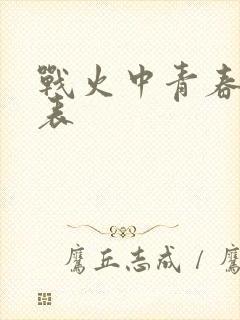 戰火中青春
表
鷹丘志成 / 鷹